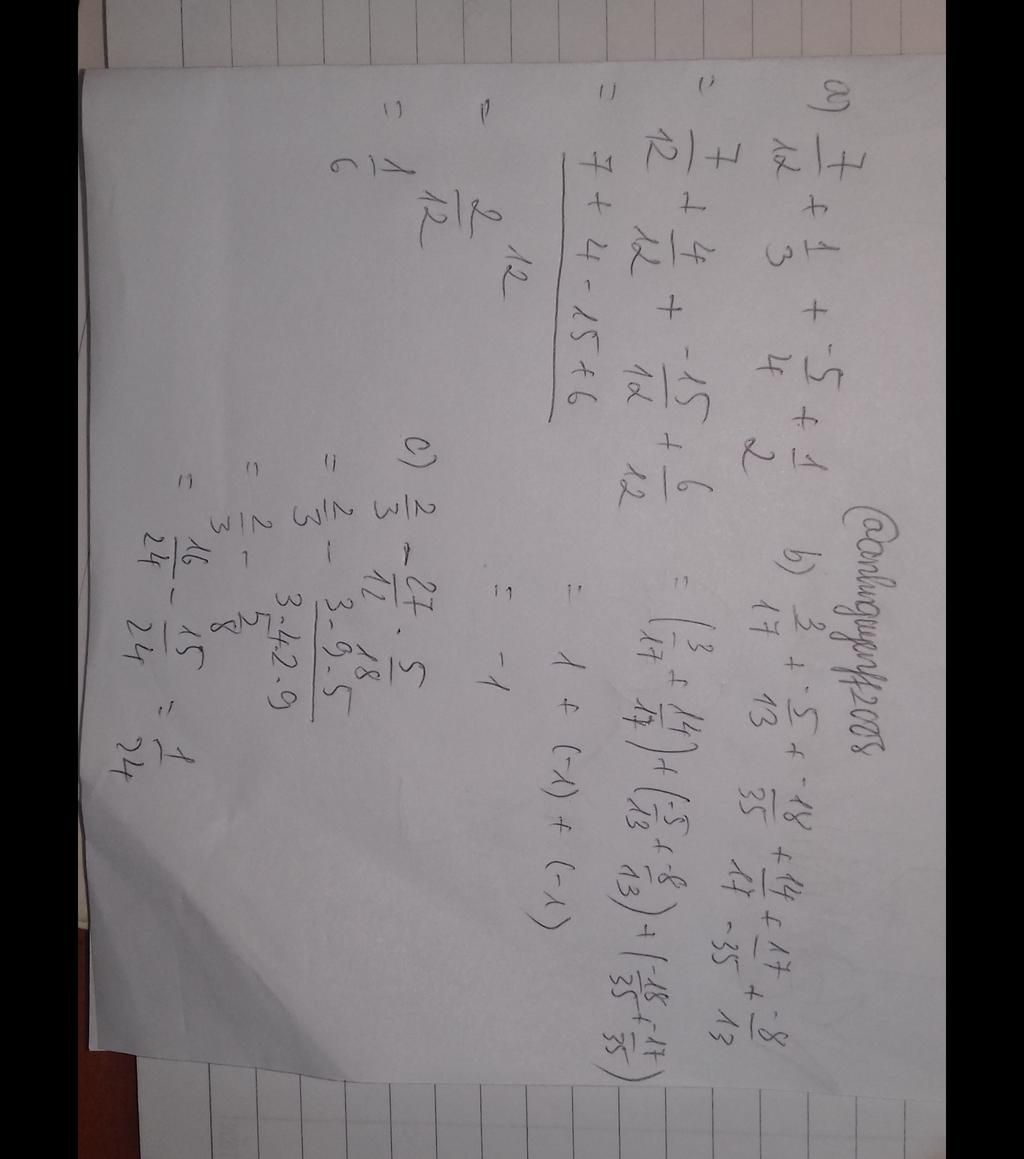 @danhnguyenff2008
a) 7/12 + 1/3 + -5/4 + 1/2
= 7/12 + 4/12 + -15/12 + 6/12
= (7 + 4 - 15 + 6)/12
= 2/12
= 1/6
b) 3/17 + -5/13 + -18/35 + 14/17 + 17/-35 + -8/13
= (3/17 + 14/17) + (-5/13 + -8/13) + (-18/35 + -17/35)
= 1 + (-1) + (-1)
= -1
c) 2/3 - 27/12 . 5/18
= 2/3 - (3.9.5)/(3.4.2.9)
= 2/3 - 5/8
= 16/24 - 15/24 = 1/24